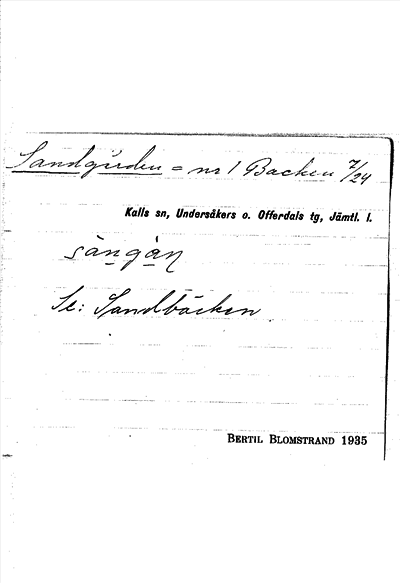 Sandgården = nr 1 Backen 7/24
Kalls sn, Undersåkers o. Offerdals tg, Jämtl. l.
sàn̠gàn̠
Se: Sandbäcken
BERTIL BLOMSTRAND 1935